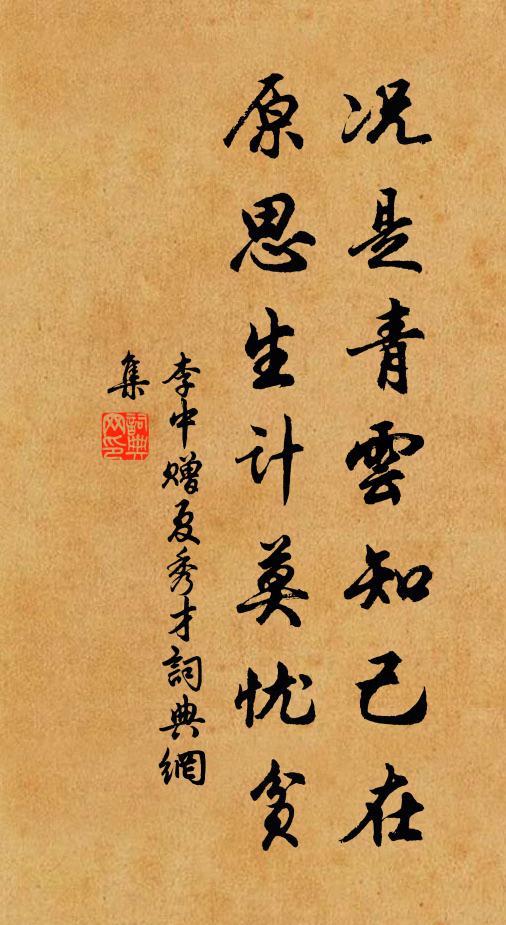 况是青雲知己在
原思生计莫忧贫
李中赠夏秀才詞典網
集
詞典
网印